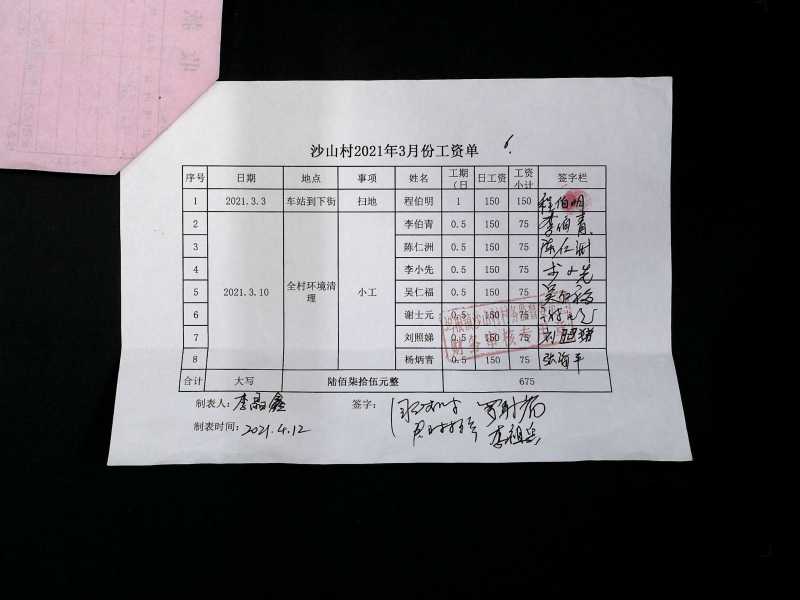 沙山村2021年3月份工资单
序号 日期 地点 事项 姓名 工期(日 日工资 工资小计 签字栏
1 2021.3.3 车站到下街 扫地 程伯明 1 150 150 程伯明
2 2021.3.10 全村环境清理 小工 李伯青 0.5 150 75 李伯青
3 陈仁洲 0.5 150 75 陈仁洲
4 李小先 0.5 150 75
5 吴仁福 0.5 150 75 吴仁福
6 谢士元 0.5 150 75
7 刘照娣 0.5 150 75
8 杨炳青 0.5 150 75
合计 大写 陆佰柒拾伍元整 675
制表人: 李晶鑫 签字:
制表时间: 2021.4.12
李祖兵